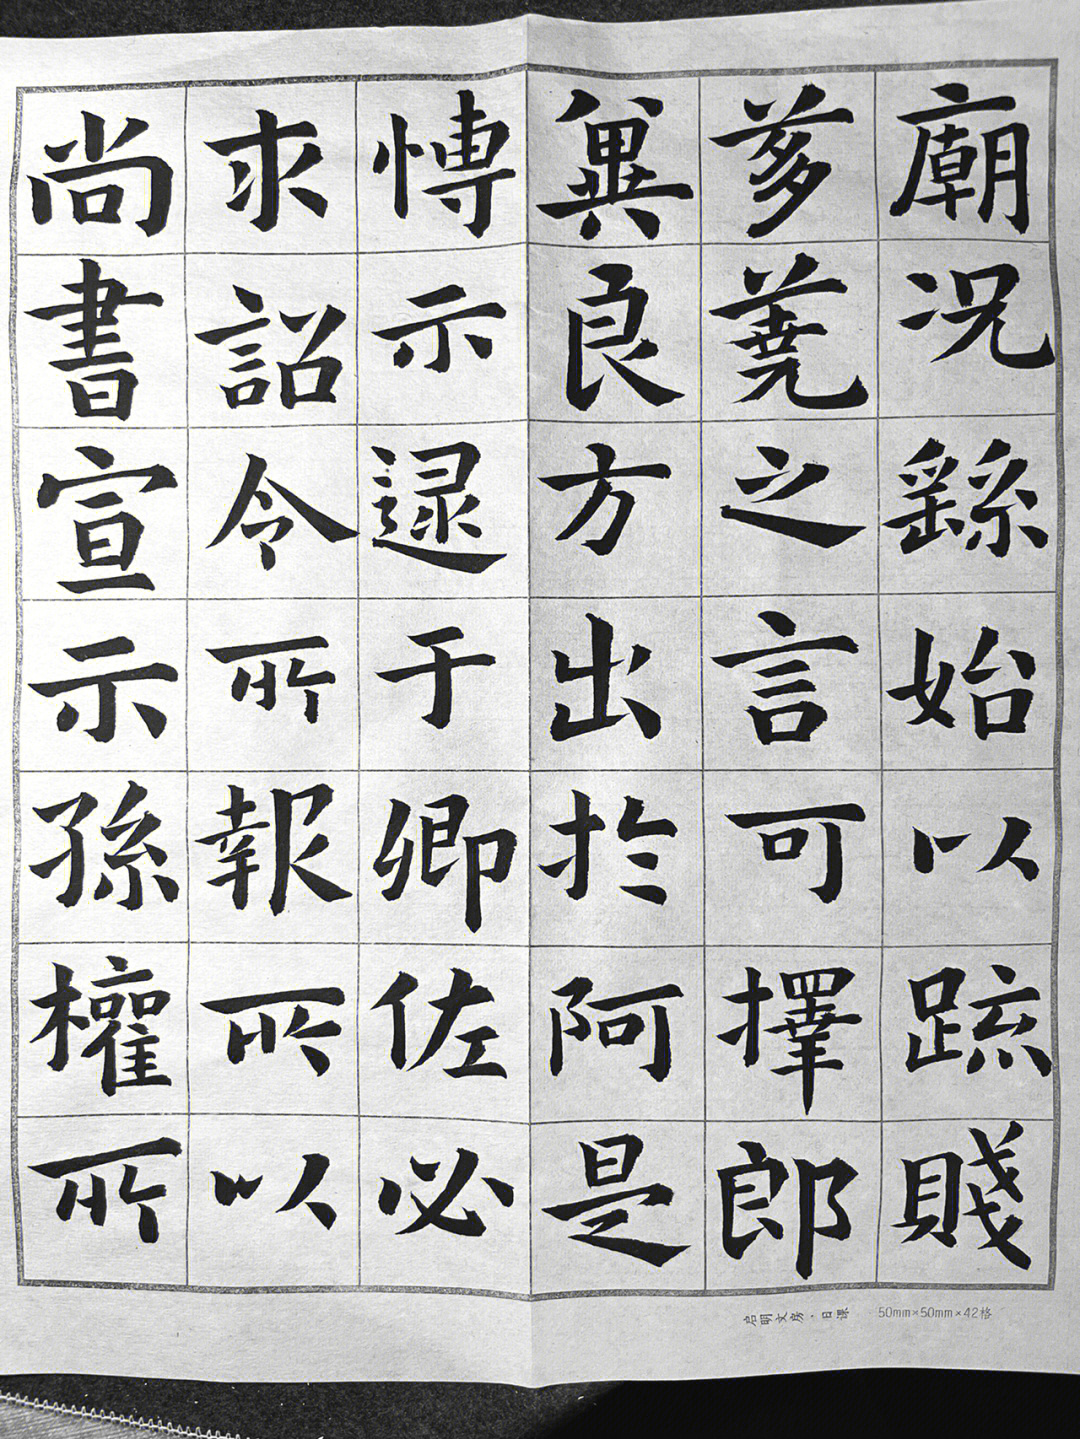 尚書宣示孫權所
求詔令所報所以
愽示逮于卿佐必
冀良方出於阿是
芻蕘之言可擇郎
廟况繇始以疏賤
启明文房·日课 50mm×50mm×42格